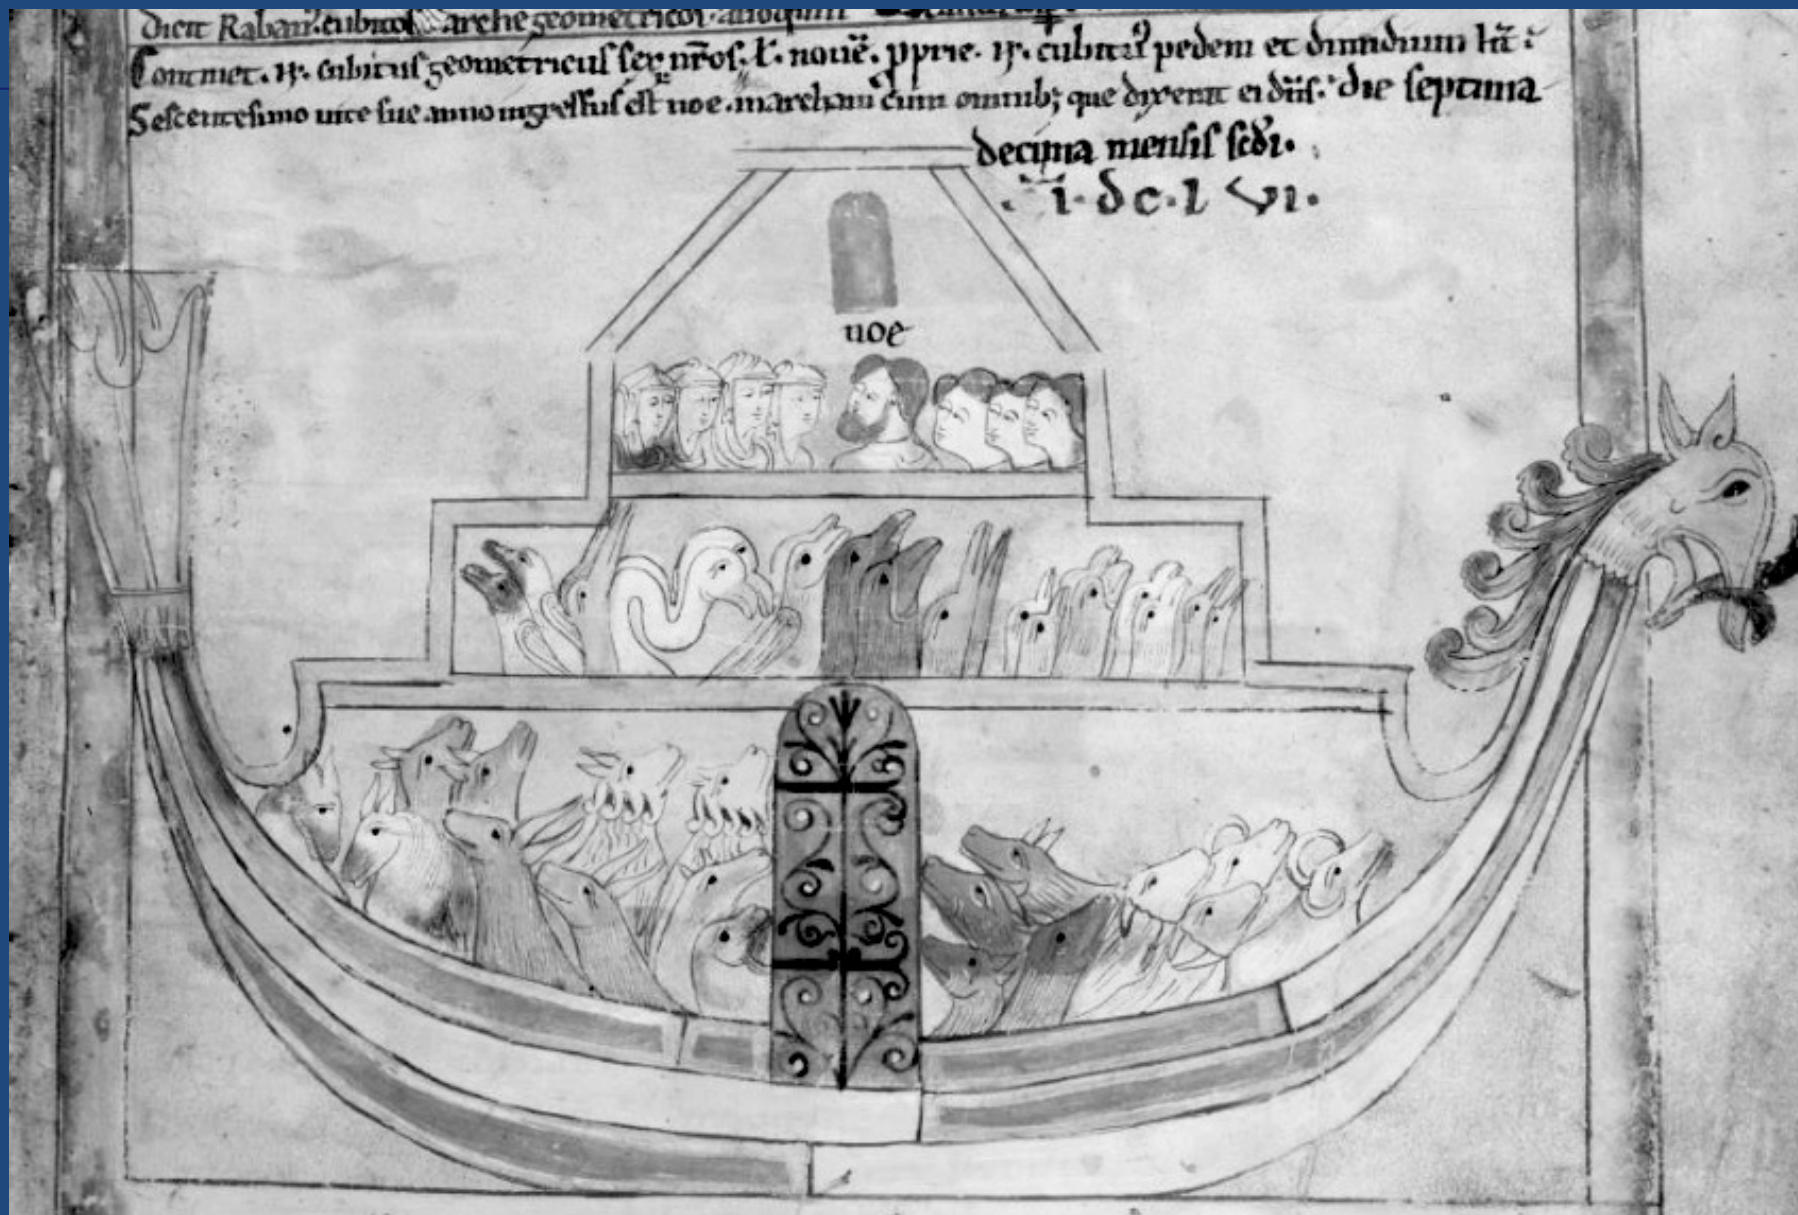 dicit Raban. cubitos arche geometricos. alioquin
Continet. n. cubitus geometricus sex nr̄os. t. nouē. ꝓprie. n. cubitꝰ pedem et dimidium hā :
Sescentesimo uite sue anno ingressus est noe. in archam cum omnibꝫ que dixerat ei dn̄s. die septima
decima mensis scd̄i.
.ī.dc.l vi.
noe